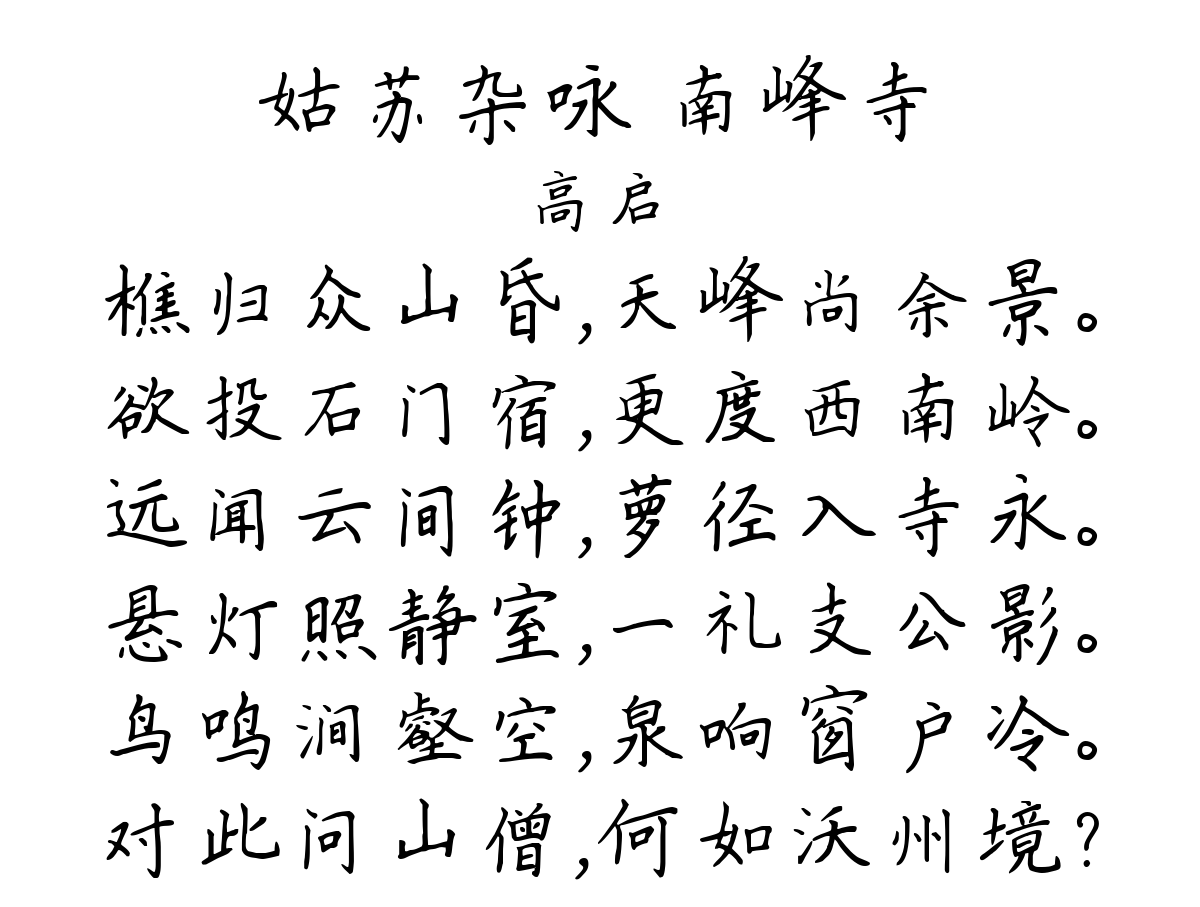 姑苏杂咏 南峰寺
高启
樵归众山昏,天峰尚余景。
欲投石门宿,更度西南岭。
远闻云间钟,萝径入寺永。
悬灯照静室,一礼支公影。
鸟鸣涧壑空,泉响窗户冷。
对此问山僧,何如沃州境?